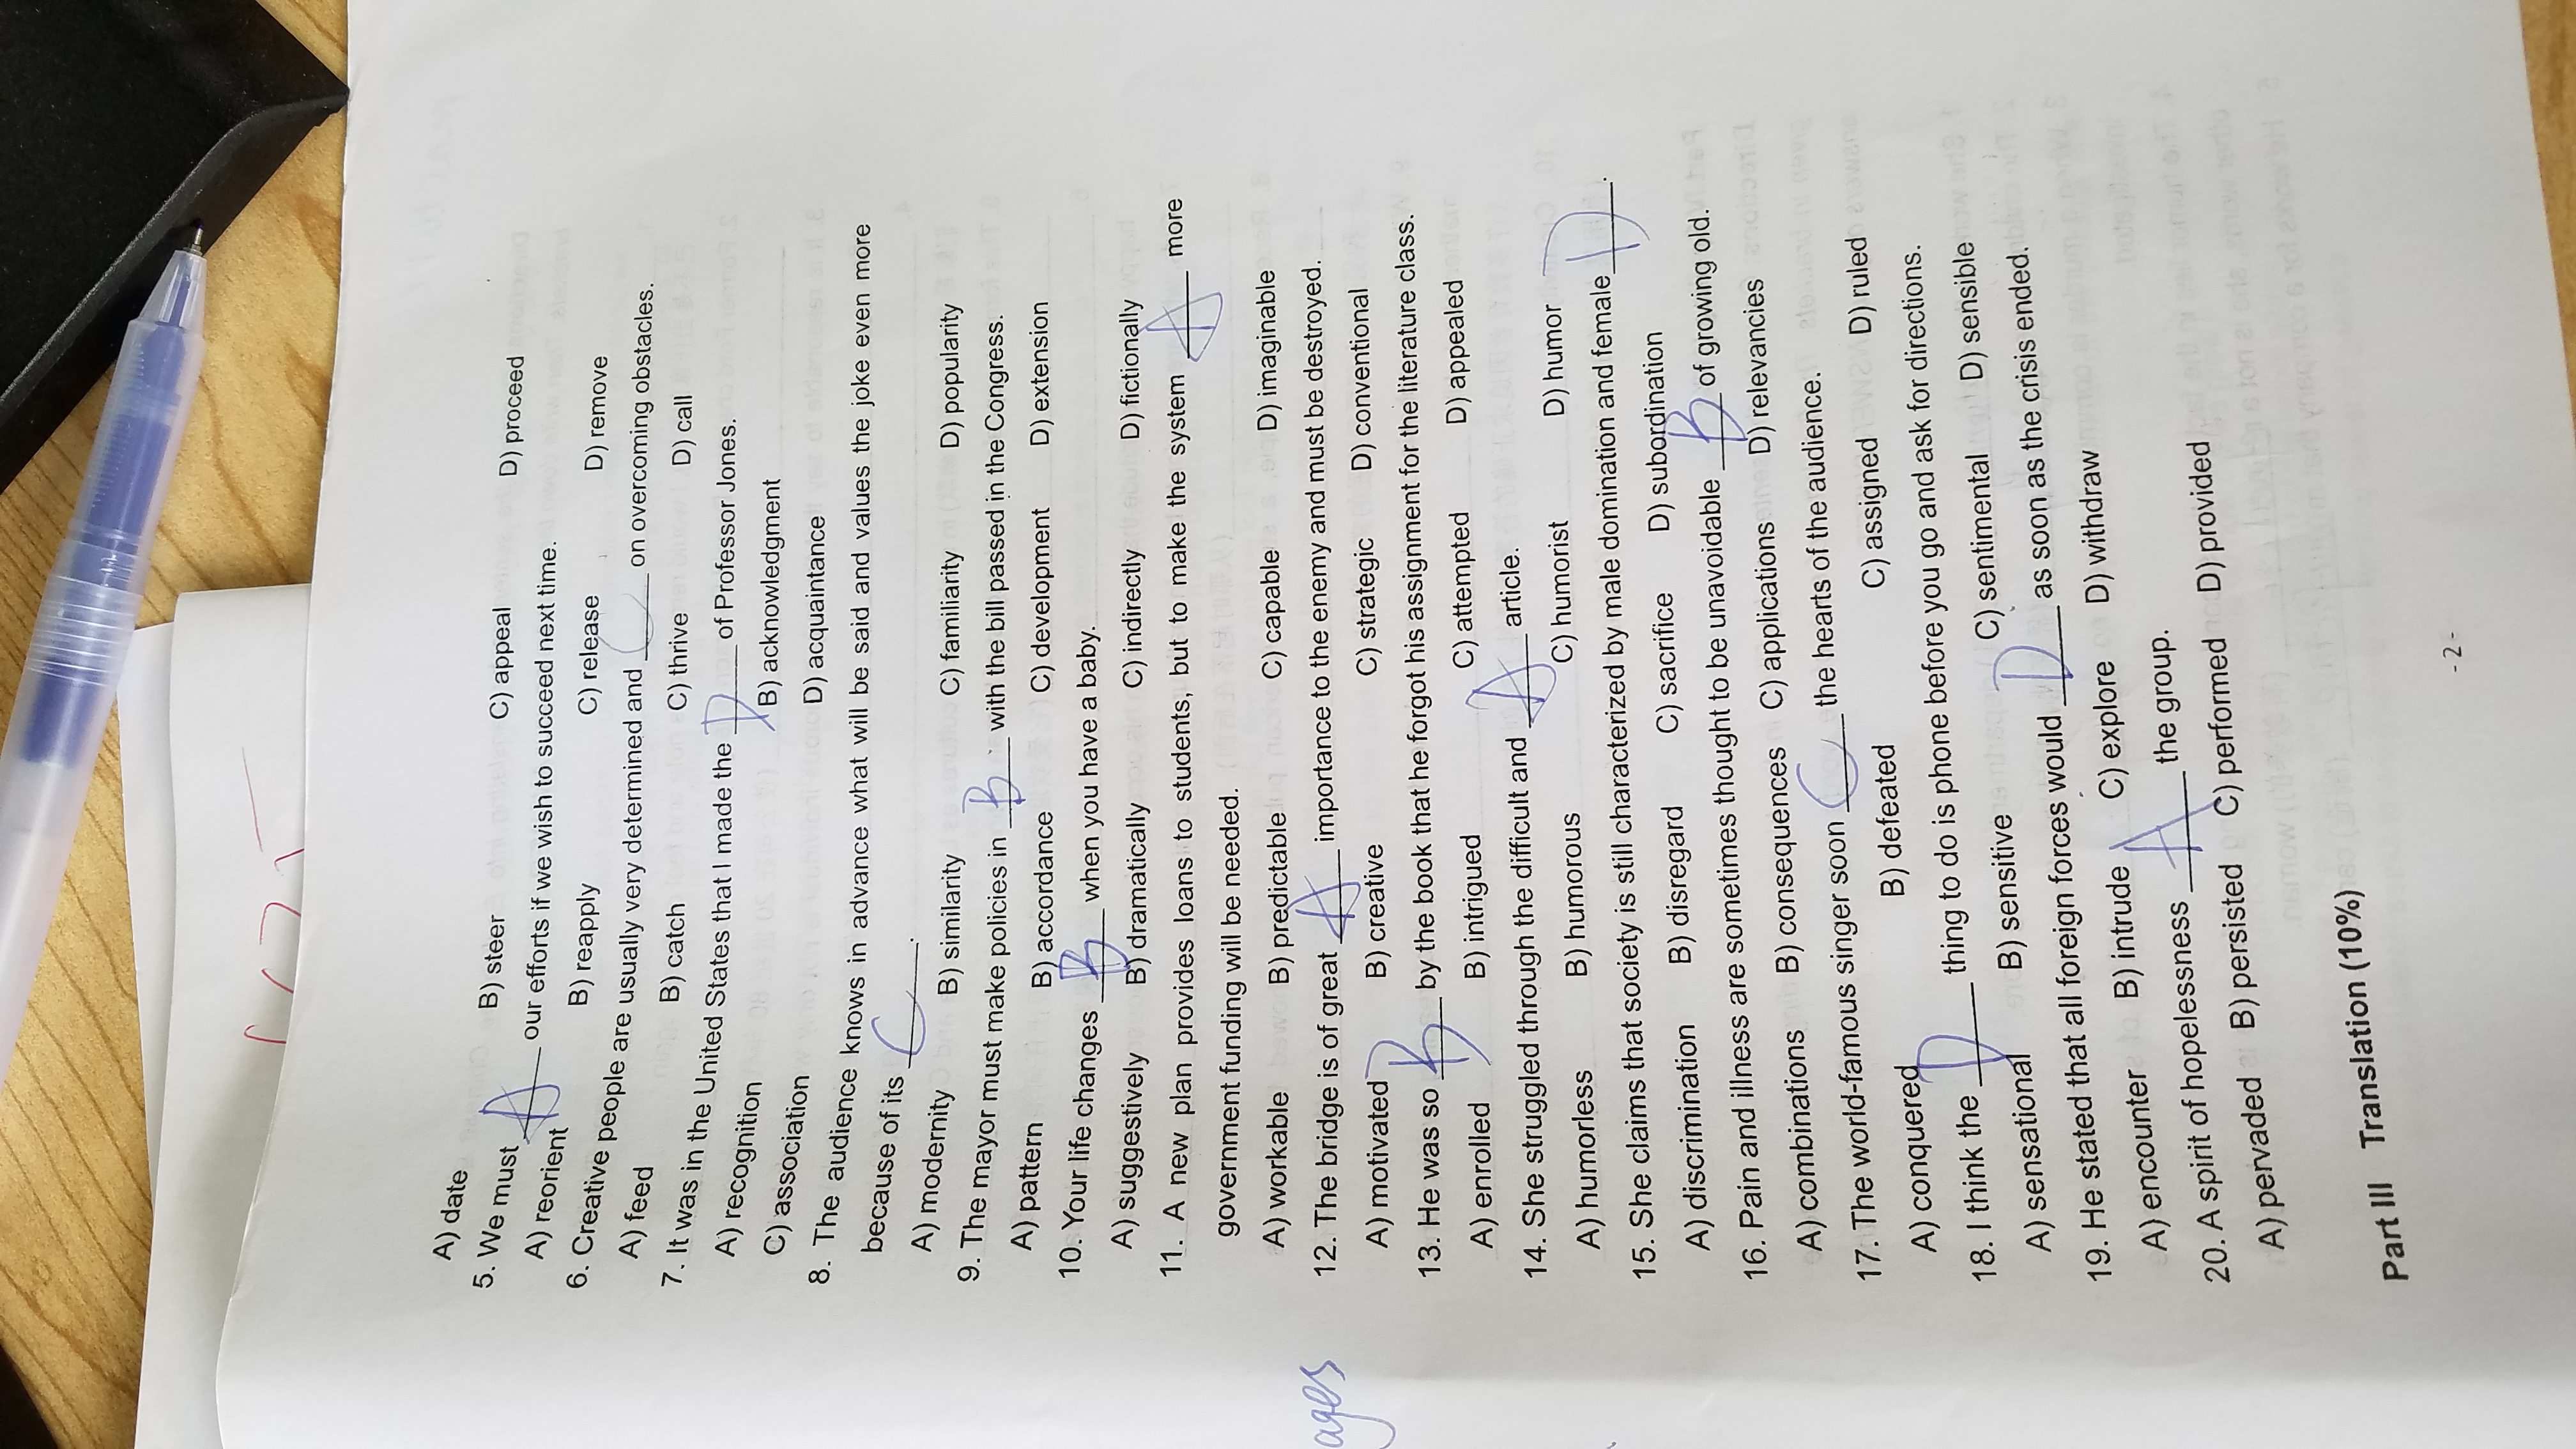 A) date B) steer C) appeal D) proceed
5. We must A our efforts if we wish to succeed next time.
A) reorient B) reapply C) release D) remove
6. Creative people are usually very determined and C on overcoming obstacles.
A) feed B) catch C) thrive D) call
7. It was in the United States that I made the D of Professor Jones.
A) recognition B) acknowledgment
C) association D) acquaintance
8. The audience knows in advance what will be said and values the joke even more
because of its C.
A) modernity B) similarity C) familiarity D) popularity
9. The mayor must make policies in B with the bill passed in the Congress.
A) pattern B) accordance C) development D) extension
10. Your life changes B when you have a baby.
A) suggestively B) dramatically C) indirectly D) fictionally
11. A new plan provides loans to students, but to make the system A more
government funding will be needed.
A) workable B) predictable C) capable D) imaginable
ages
12. The bridge is of great A importance to the enemy and must be destroyed.
A) motivated B) creative C) strategic D) conventional
13. He was so B by the book that he forgot his assignment for the literature class.
A) enrolled B) intrigued C) attempted D) appealed
14. She struggled through the difficult and A article.
A) humorless B) humorous C) humorist D) humor
15. She claims that society is still characterized by male domination and female D.
A) discrimination B) disregard C) sacrifice D) subordination
16. Pain and illness are sometimes thought to be unavoidable B of growing old.
A) combinations B) consequences C) applications D) relevancies
17. The world-famous singer soon C the hearts of the audience.
A) conquered B) defeated C) assigned D) ruled
18. I think the D thing to do is phone before you go and ask for directions.
A) sensational B) sensitive C) sentimental D) sensible
19. He stated that all foreign forces would D as soon as the crisis ended.
A) encounter B) intrude C) explore D) withdraw
20. A spirit of hopelessness A the group.
A) pervaded B) persisted C) performed D) provided
Part III Translation (10%)
- 2 -